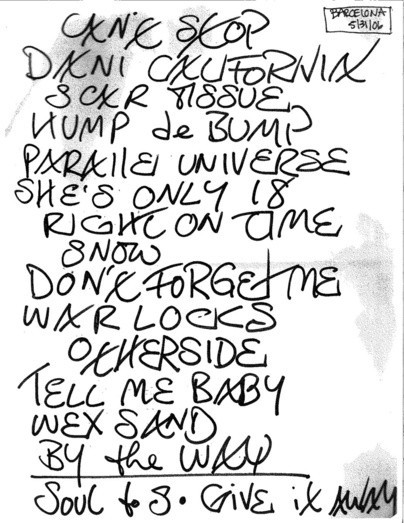 BARCELONA
5/31/06
CAN'T STOP
DANI CALIFORNIA
SCAR TISSUE
HUMP de BUMP
PARAllEl UNIVERSE
SHE'S ONLY 18
RIGHT ON TIME
SNOW
DON'T FORGET ME
WARLOCKS
OTHERSIDE
TELL ME BABY
WET SAND
BY the WAY
SOUL to S. GIVE iT AWAY